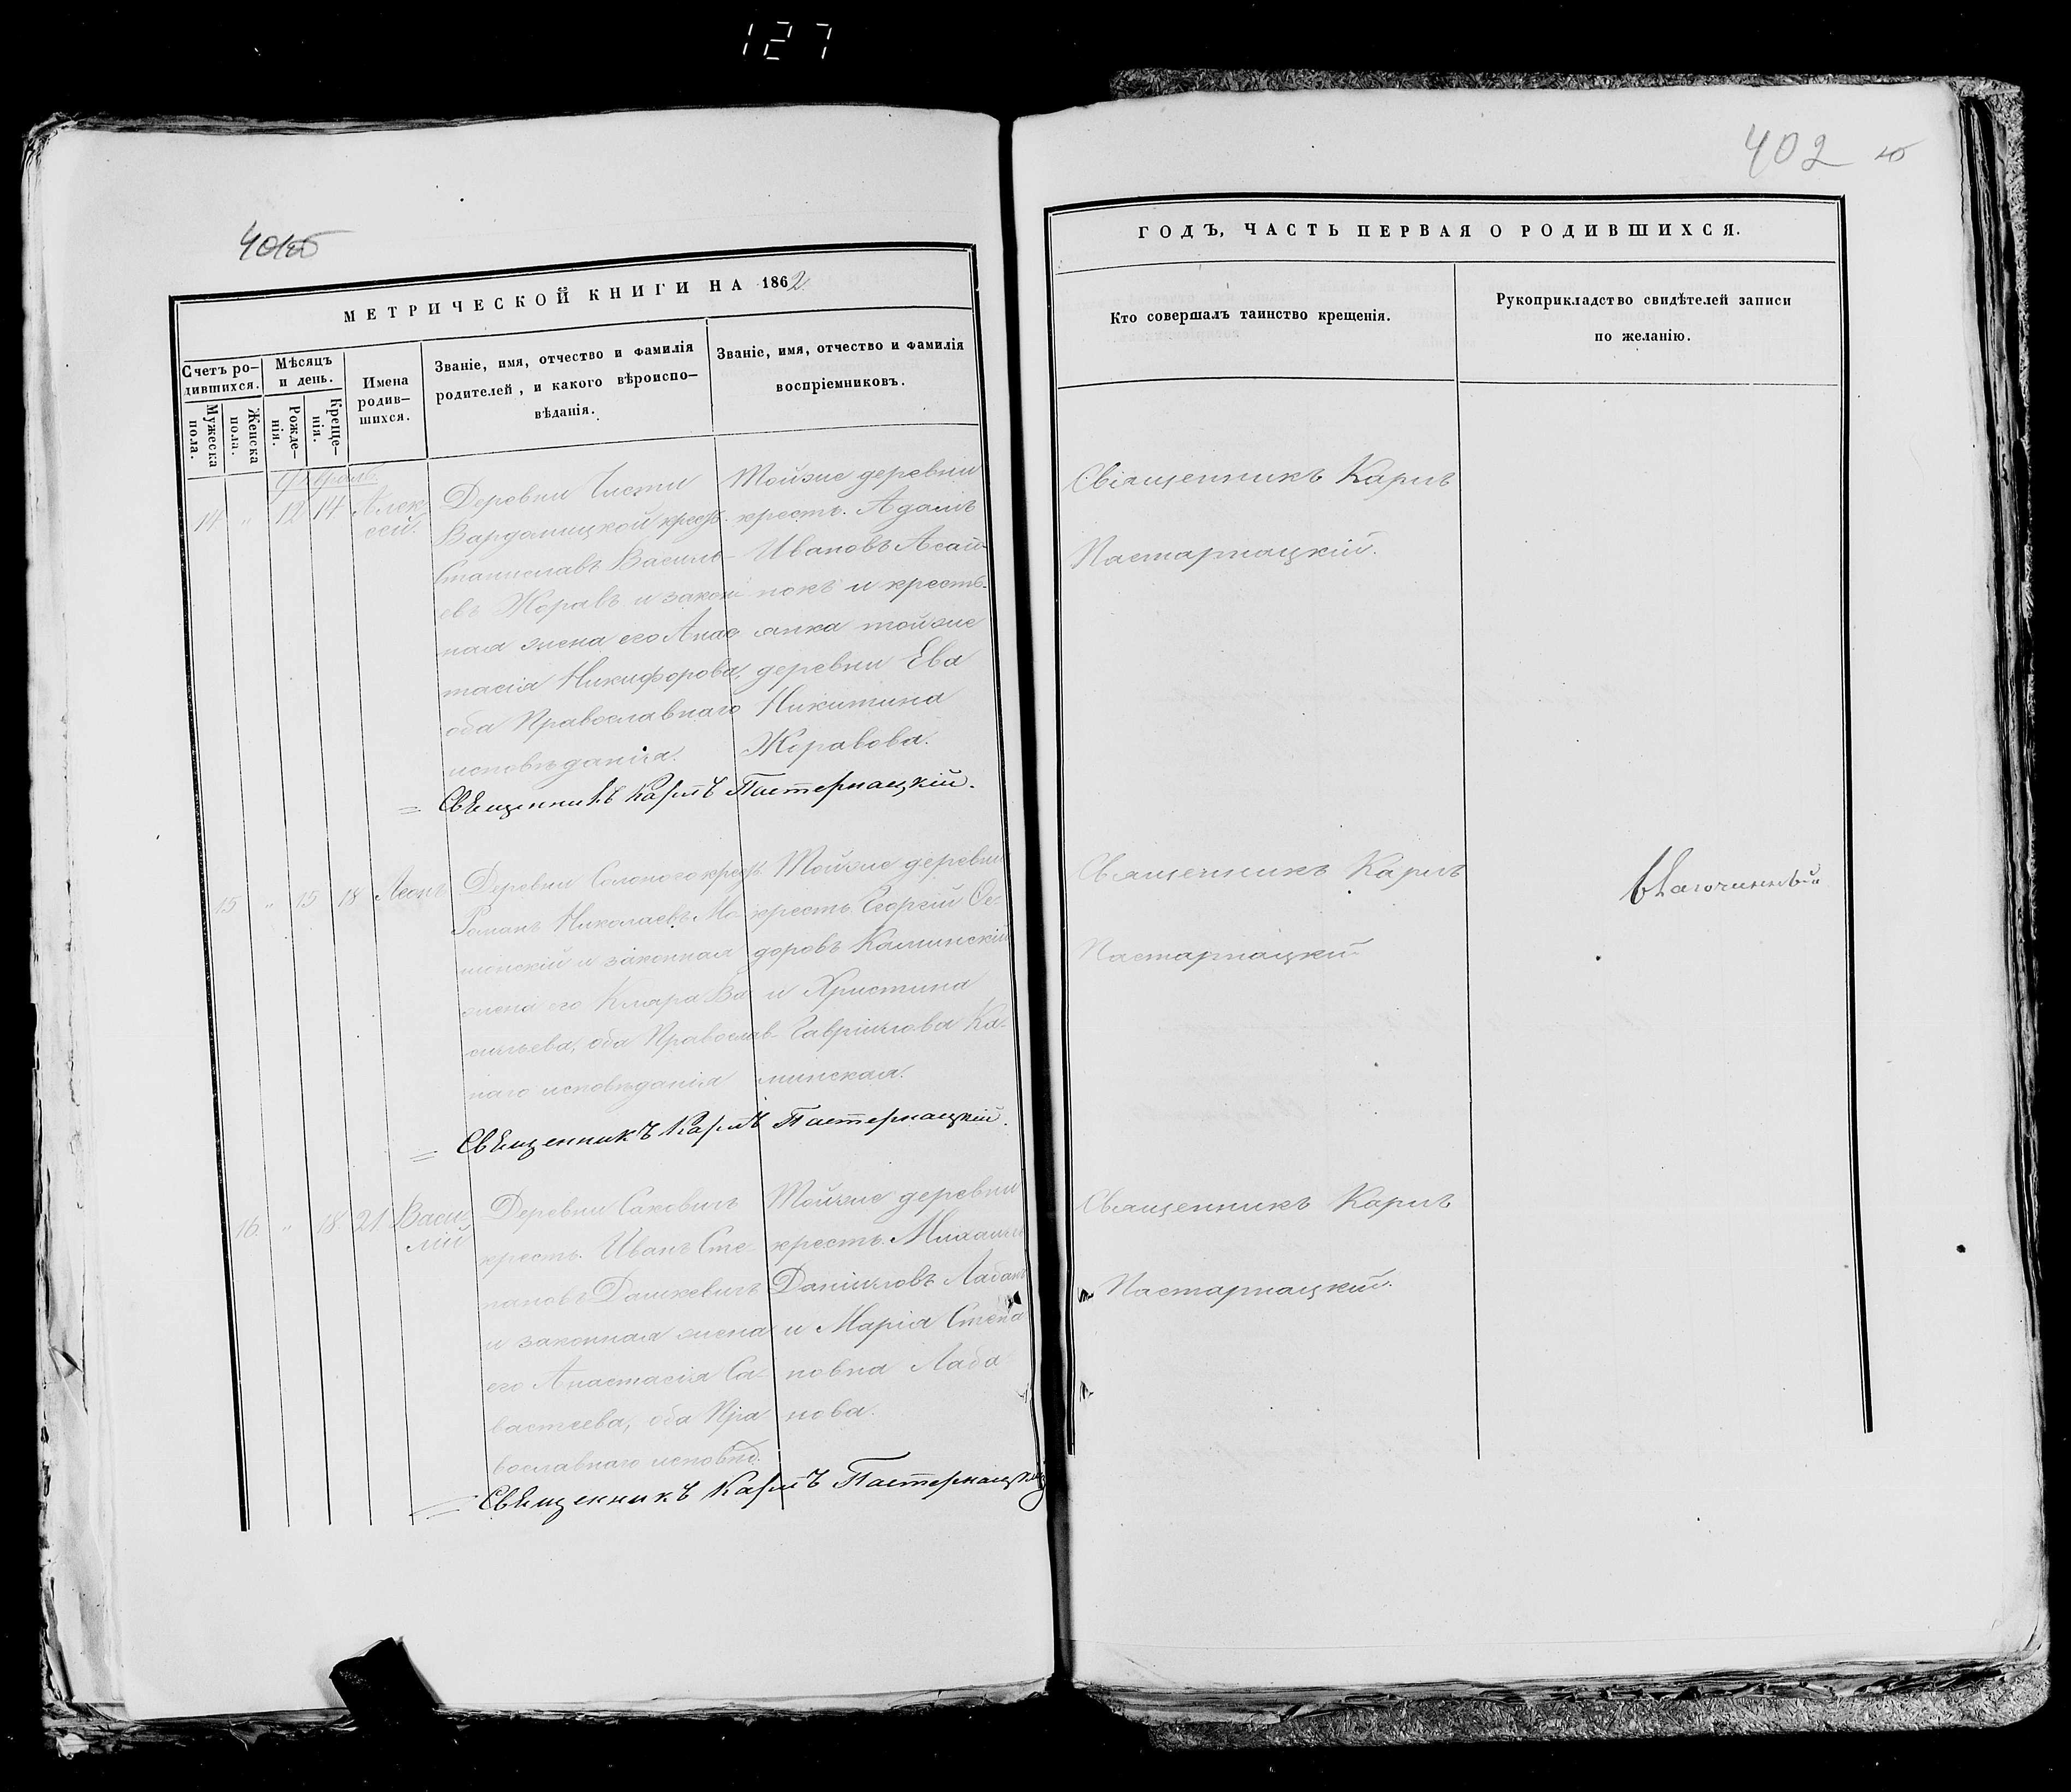 127
402
МЕТРИЧЕСКОЙ КНИГИ НА 1862
Счетъ ро-
дившихся.
Мужеска
пола.
Женска
пола.
Мѣсяцъ
и день.
Рожде-
нія.
Креще-
нія.
Имена
родив-
шихся.
Званіе, имя, отчество и фамилія
родителей, и какого вѣроиспо-
вѣданія.
Званіе, имя, отчество и фамилія
воспріемниковъ.
14 " 12 14 Алек-
сей.
Деревни Чисти
крест.
Станиславъ Василь-
евъ Жоравъ и закон
ная жена его Анас
тасія Никифорова,
оба Православнаго
исповѣданія.
Тойже деревни
крест. Адамъ
Ивановъ Асай-
нокъ и кресть-
янка тойже
деревни Ева
Никитина
Жоравова.
Священникъ Карпъ Пастернацкій.
15 " 15 18 Леонъ
Деревни
Романъ Николаевъ
и законная
жена его Клара Ва
сильева, оба Православ-
наго исповѣданія
Тойже деревни
крест. Георгій Ѳе-
доровъ Каминскій
и Христина
Гавріилова Ка-
минская.
Священникъ Карпъ Пастернацкій.
16 " 18 21 Васи-
лій
Деревни Саковичъ
крест. Иванъ Сте-
пановъ Дашкевичъ
и законная жена
его Анастасія Са-
вастеева, оба Пра
вославнаго исповѣд.
Тойже деревни
крест. Михаилъ
Даніиловъ Лабанъ
и Марія Степа
новна Лаба
нова.
Священникъ Карпъ Пастернацкій
ГОДЪ, ЧАСТЬ ПЕРВАЯ О РОДИВШИХСЯ.
Кто совершалъ таинство крещенія.
Рукоприкладство свидѣтелей записи
по желанію.
Священникъ Карпъ
Пастарнацкій.
Священникъ Карпъ
Пастарнацкій
Благочинный
Священникъ Карпъ
Пастарнацкій.